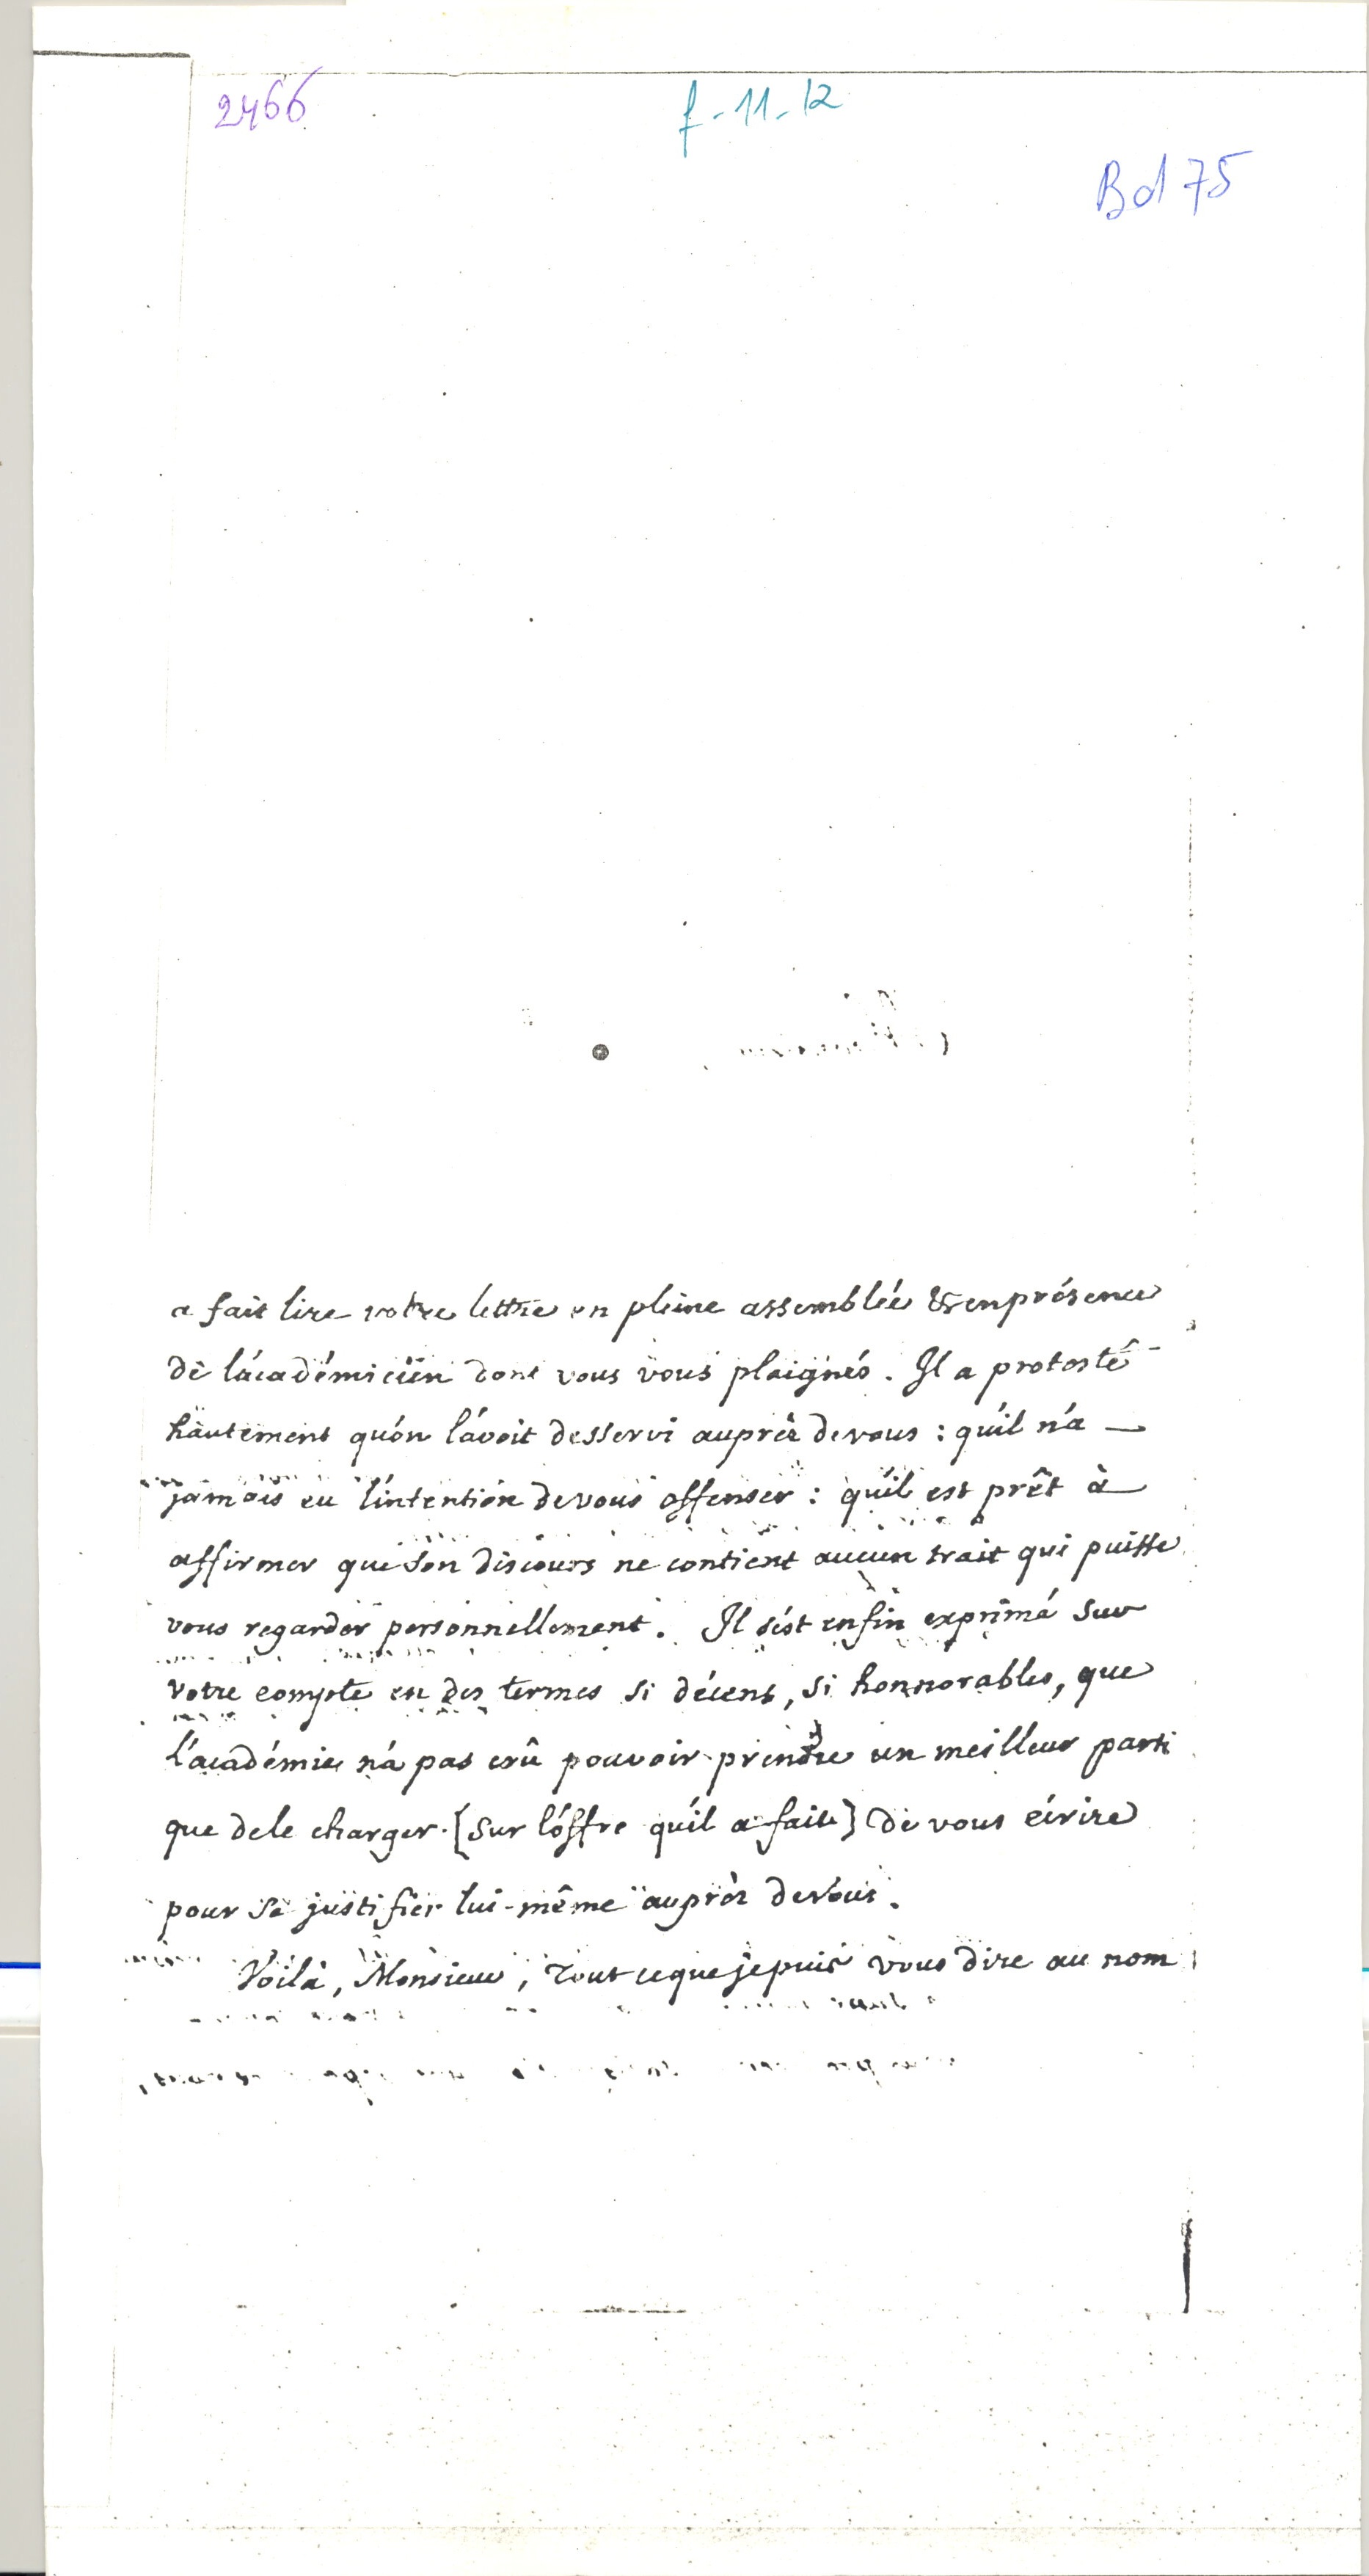 2466
f-11-12
Bd 75
a fait lire votre lettre en pleine assemblée & en présence
de l'académicien dont vous vous plaignés. Il a protesté
hautement qu'on l'avoit desservi auprès de vous : qu'il n'a
jamais eu l'intention de vous offenser : qu'il est prêt à
affirmer que son discours ne contient aucun trait qui puisse
vous regarder personnellement. Il s'est enfin exprimé sur
votre compte en des termes si décens, si honnorables, que
l'académie n'a pas crû pouvoir prendre un meilleur parti
que de le charger [sur l'offre qu'il a faite] de vous écrire
pour se justifier lui-même auprès de vous.
Voilà, Monsieur, tout ce que je puis vous dire au nom